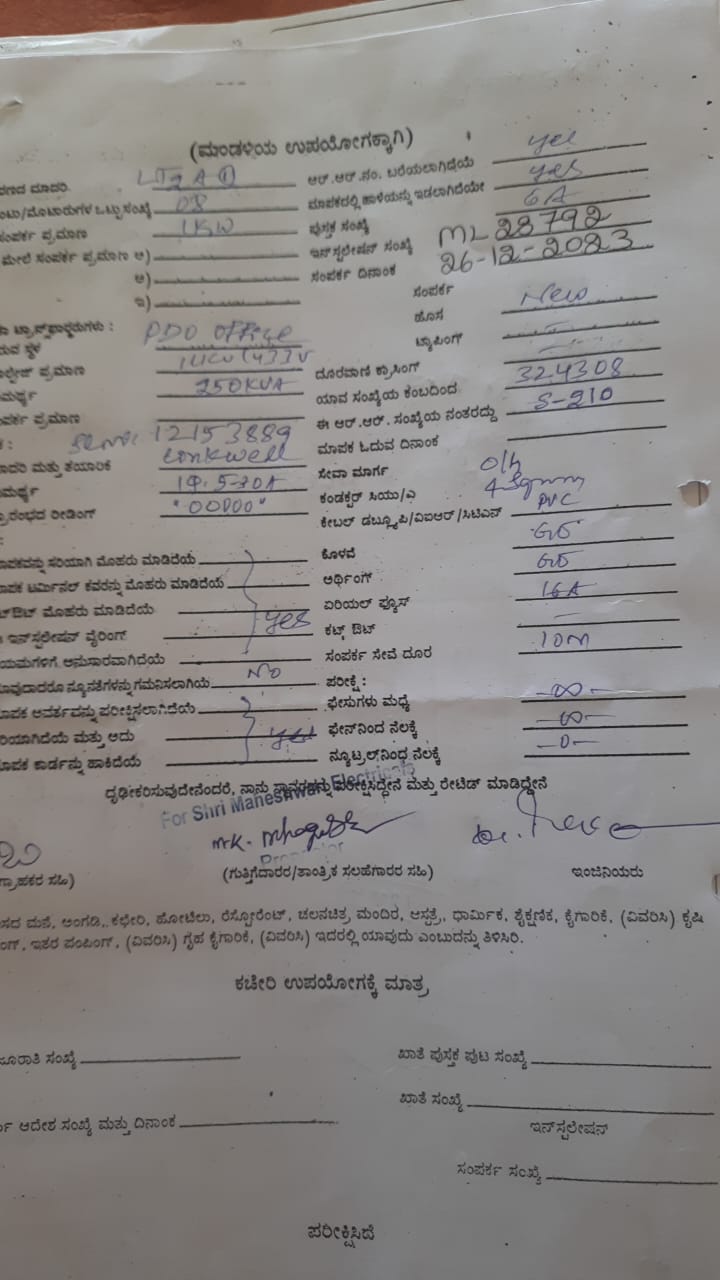 (ಮಂಡಳಿಯ ಉಪಯೋಗಕ್ಕಾಗಿ)
ಮಾದರಿ LT2A ① ಆರ್.ಆರ್.ನಂ. ಬರೆಯಲಾಗಿದೆಯೆ yes
ಒಟ್ಟು ಸಂಖ್ಯೆ 08 ಮಾಪಕದಲ್ಲಿ ಹಾಳೆಯನ್ನು ಇಡಲಾಗಿದೆಯೇ yes
ಸಂಪರ್ಕ ಪ್ರಮಾಣ 1KW ಪುಸ್ತಕ ಸಂಖ್ಯೆ 6A
ಮೇಲೆ ಸಂಪರ್ಕ ಪ್ರಮಾಣ ಅ) ಇನ್‌ಸ್ಟಲೇಷನ್ ಸಂಖ್ಯೆ ML 28792
ಆ) ಸಂಪರ್ಕ ದಿನಾಂಕ 26-12-2023
ಇ) ಸಂಪರ್ಕ
ಟ್ರಾನ್ಸ್‌ಫಾರ್ಮರುಗಳು : PDO office ಹೊಸ New
ಸ್ಥಳ 11KV/433V ಟ್ಯಾಪಿಂಗ್ -
ಪ್ರಮಾಣ 250KVA ದೂರವಾಣಿ ಕ್ರಾಸಿಂಗ್ -
ಯಾವ ಸಂಖ್ಯೆಯ ಕಂಬದಿಂದ 324308
ಪ್ರಮಾಣ ಈ ಆರ್.ಆರ್. ಸಂಖ್ಯೆಯ ನಂತರದ್ದು S-210
12153889 ಮಾಪಕ ಓದುವ ದಿನಾಂಕ
ಮತ್ತು ತಯಾರಿಕೆ Linkwell ಸೇವಾ ಮಾರ್ಗ O/h
1Φ. 5-30A ಕಂಡಕ್ಟರ್ ಸಿಯು/ಎ 4 Sqmm
ರೀಡಿಂಗ್ "00000" ಕೇಬಲ್ ಡಬ್ಲ್ಯೂಪಿ/ವಿಐಆರ್/ಸಿಟಿಎಸ್ PVC
ಸರಿಯಾಗಿ ಮೊಹರು ಮಾಡಿದೆಯೆ ಕೊಳವೆ GI
ಟರ್ಮಿನಲ್ ಕವರನ್ನು ಮೊಹರು ಮಾಡಿದೆಯೆ ಅರ್ಥಿಂಗ್ GI
ಮೊಹರು ಮಾಡಿದೆಯೆ yes ಏರಿಯಲ್ ಫ್ಯೂಸ್ 16A
ಇನ್‌ಸ್ಟಲೇಷನ್ ವೈರಿಂಗ್ ಕಟ್ಸ್ ಔಟ್ -
ಅನುಸಾರವಾಗಿದೆಯೆ ಸಂಪರ್ಕ ಸೇವೆ ದೂರ 10m
ನ್ಯೂನತೆಗಳನ್ನು ಗಮನಿಸಲಾಗಿಯೆ No ಪರೀಕ್ಷೆ :
ಪರೀಕ್ಷಿಸಲಾಗಿದೆಯೆ ಫೇಸುಗಳು ಮಧ್ಯೆ -∞-
ಮತ್ತು ಅದು yes ಫೇಸ್‌ನಿಂದ ನೆಲಕ್ಕೆ -∞-
ಕಾರ್ಡನ್ನು ಹಾಕಿದೆಯೆ ನ್ಯೂಟ್ರಲ್‌ನಿಂದ ನೆಲಕ್ಕೆ -0-
ದೃಢೀಕರಿಸುವುದೇನೆಂದರೆ, ನಾನು ಪರೀಕ್ಷಿಸಿದ್ದೇನೆ ಮತ್ತು ರೇಟೆಡ್ ಮಾಡಿದ್ದೇನೆ
For Shri Maheshwari Electricals
Proprietor
ಸಹಿ) (ಗುತ್ತಿಗೆದಾರರ/ತಾಂತ್ರಿಕ ಸಲಹೆಗಾರರ ಸಹಿ) ಇಂಜಿನಿಯರು
ಮನೆ, ಅಂಗಡಿ, ಕಛೇರಿ, ಹೋಟೆಲು, ರೆಸ್ಟೋರೆಂಟ್, ಚಲನಚಿತ್ರ, ಮಂದಿರ, ಆಸ್ಪತ್ರೆ, ಧಾರ್ಮಿಕ, ಶೈಕ್ಷಣಿಕ, ಕೈಗಾರಿಕೆ, (ವಿವರಿಸಿ) ಕೃಷಿ
ಇತರ ಪಂಪಿಂಗ್, (ವಿವರಿಸಿ) ಗೃಹ ಕೈಗಾರಿಕೆ, (ವಿವರಿಸಿ) ಇದರಲ್ಲಿ ಯಾವುದು ಎಂಬುದನ್ನು ತಿಳಿಸಿರಿ.
ಕಚೇರಿ ಉಪಯೋಗಕ್ಕೆ ಮಾತ್ರ
ಸಂಖ್ಯೆ ಖಾತೆ ಪುಸ್ತಕ ಪುಟ ಸಂಖ್ಯೆ
ಖಾತೆ ಸಂಖ್ಯೆ
ಆದೇಶ ಸಂಖ್ಯೆ ಮತ್ತು ದಿನಾಂಕ ಇನ್‌ಸ್ಟಲೇಷನ್
ಸಂಪರ್ಕ ಸಂಖ್ಯೆ
ಪರೀಕ್ಷಿಸಿದೆ